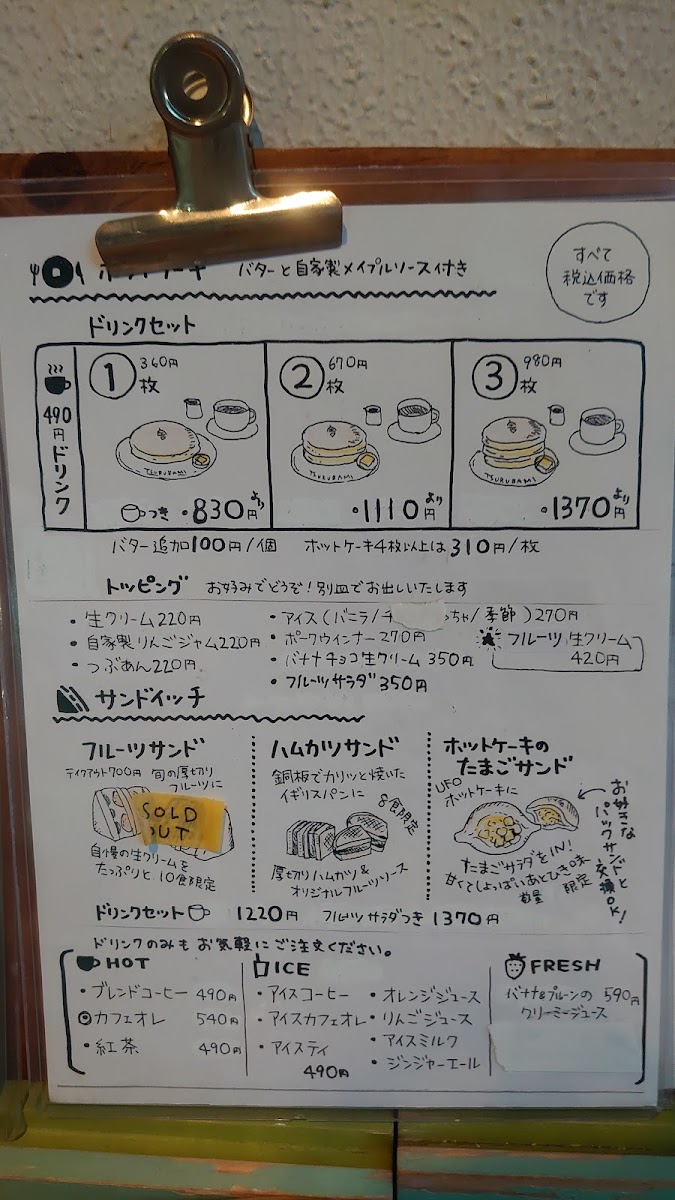 ホットケーキ バターと自家製メイプルソース付き
すべて
税込価格
です
ドリンクセット
490円ドリンク
① 360円
枚
TSURUBAMI
つき・830円より
② 670円
枚
TSURUBAMI
・1110円より
③ 980円
枚
TSURUBAMI
・1370円より
バター追加100円/個 ホットケーキ4枚以上は310円/枚
トッピング お好みでどうぞ!別皿でお出しいたします
・生クリーム220円
・自家製りんごジャム220円
・つぶあん220円
・アイス(バニラ/チ ちゃ/季節)270円
・ポークウインナー270円
・バナナチョコ生クリーム 350円
・フルーツサラダ350円
フルーツ生クリーム
420円
サンドイッチ
フルーツサンド
テイクアウト700円 旬の厚切り
フルーツに
SOLD
OUT
自慢の生クリームを
たっぷりと 10食限定
ハムカツサンド
銅板でカリッと焼いた
イギリスパンに
8食限定
厚切りハムカツ&
オリジナルフルーツソース
ホットケーキの
たまごサンド
UFO
ホットケーキに
たまごサラダをIN!
甘くてしょっぱいあとひき味
数量限定
お好きな
パックサンドと
交換OK!
ドリンクセット 1220円 フルーツサラダつき 1370円
ドリンクのみもお気軽にご注文ください。
HOT
・ブレンドコーヒー 490円
カフェオレ 540円
・紅茶 490円
ICE
・アイスコーヒー
・アイスカフェオレ
・アイスティ
・オレンジジュース
・りんごジュース
・アイスミルク
・ジンジャーエール
490円
FRESH
バナナ&プルーンの 590円
クリーミージュース